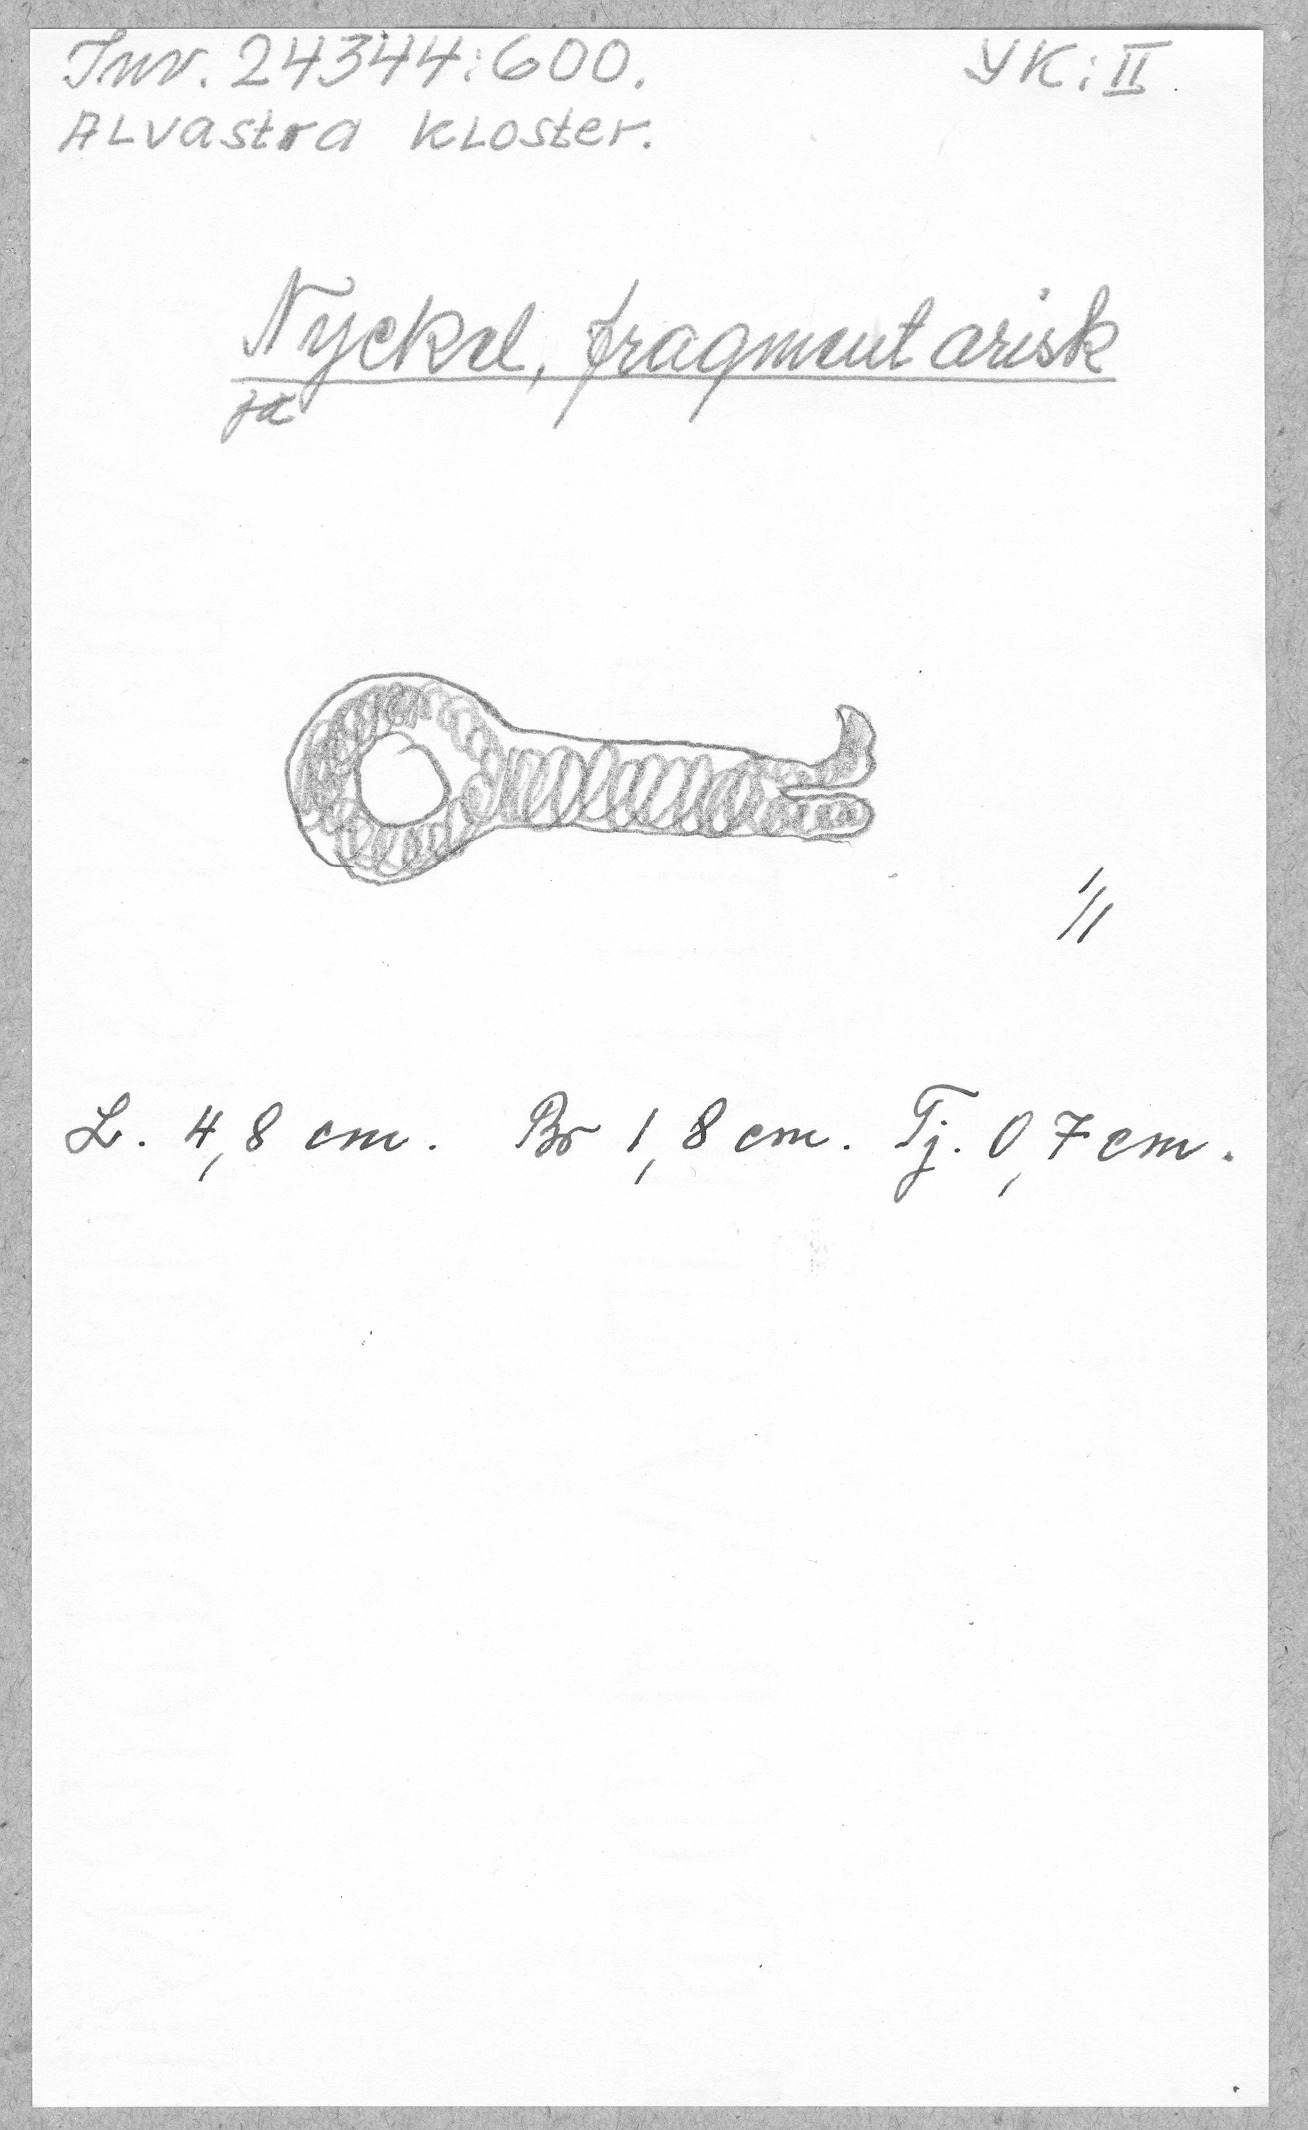 Inv. 24344:600. YK:II.
Alvastra kloster.
Nyckel, fragmentarisk
1/1
L. 4,8 cm. Br 1,8 cm. Tj. 0,7 cm.